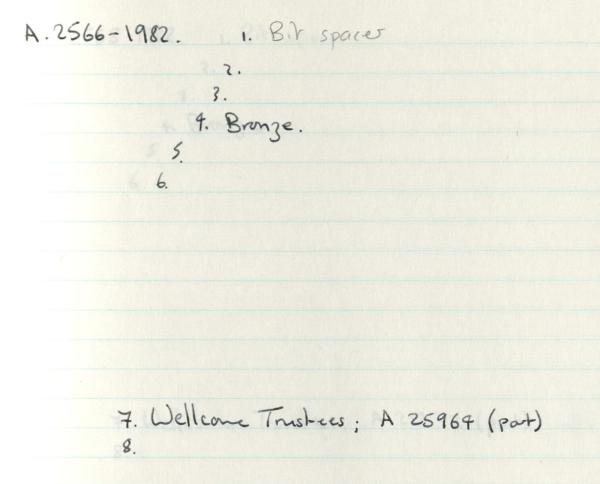 A.2566-1982. 1. Bit spacer
2.
3.
4. Bronze.
5.
6.
7. Wellcome Trustees; A 25964 (part)
8.